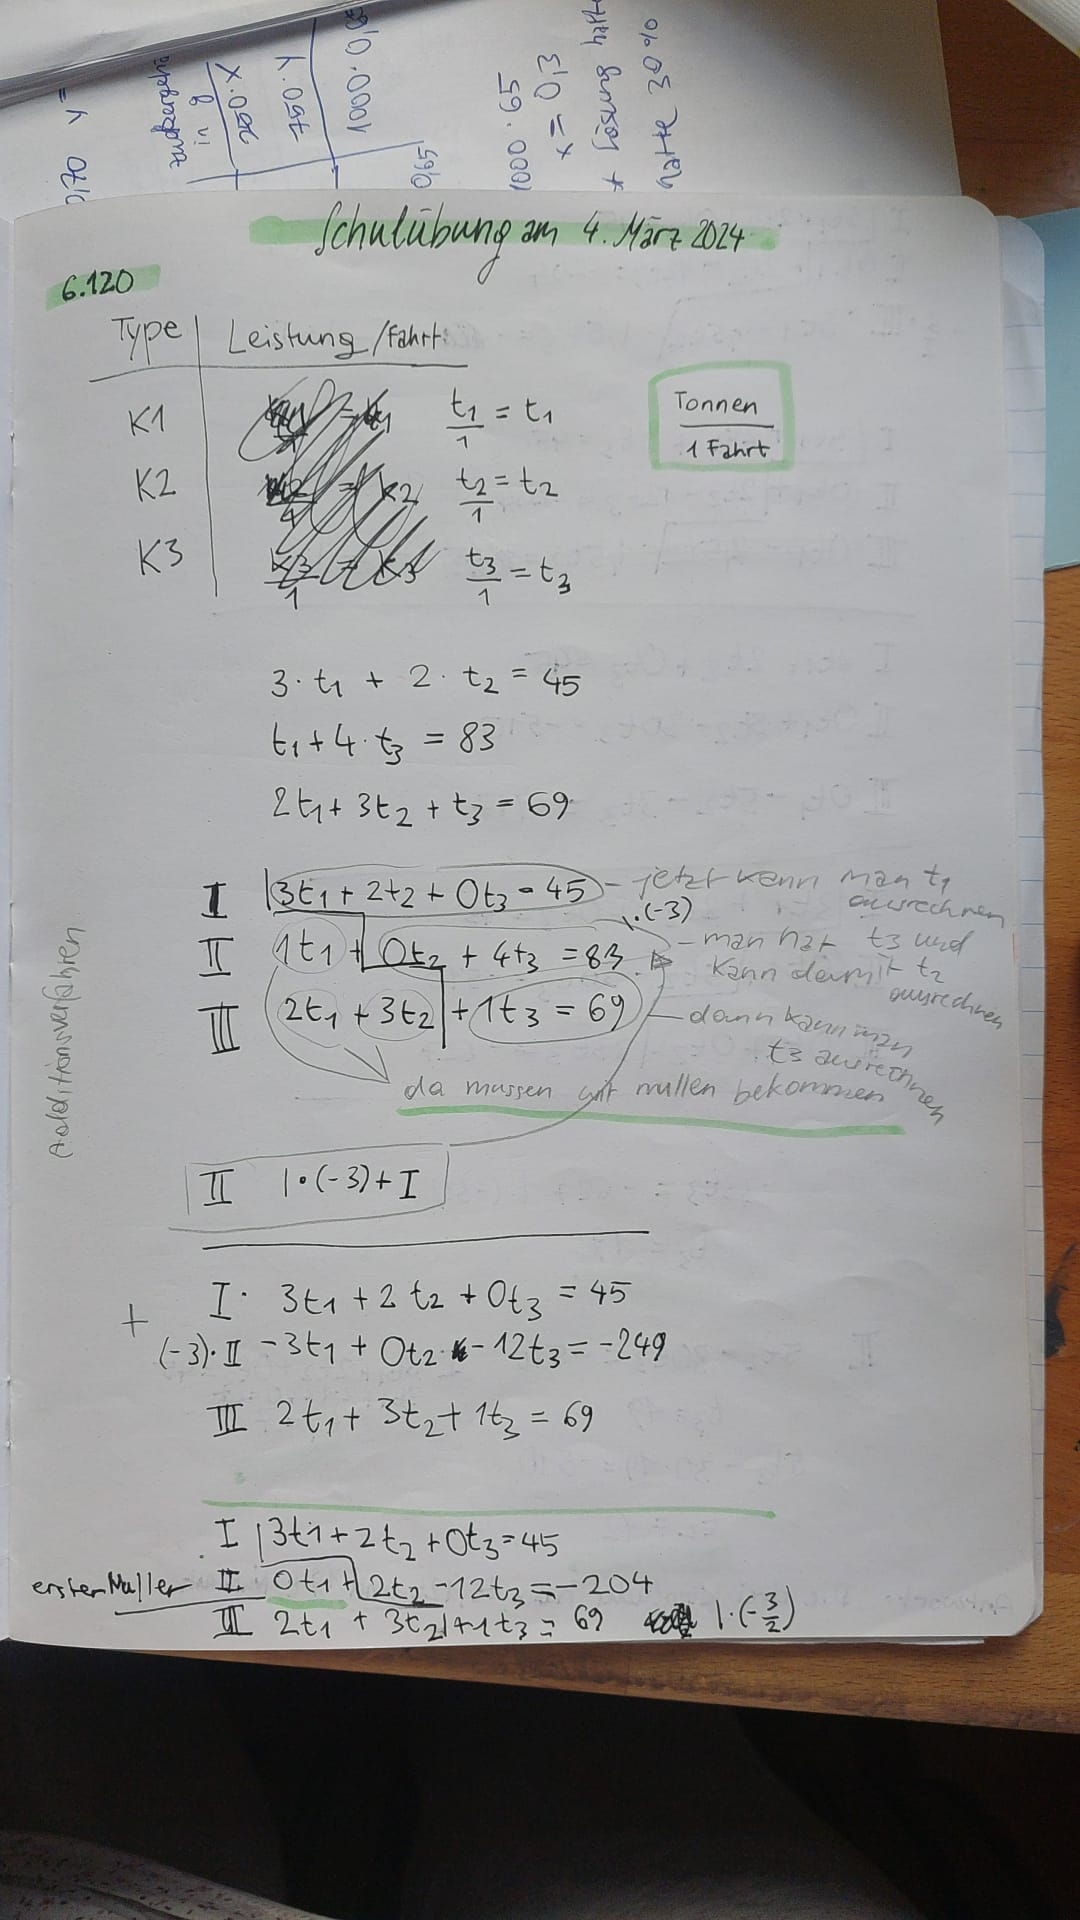 zugaregebn
in
g
250·X
750·Y
1000·0,65
0,65
0,70 Y=
1000·65
x=0,3
* Lösung
hatte 30%
Schulübung am 4. März 2024
6.120
Type Leistung /Fahrt
K1 t1/1 = t1
Tonnen
1 Fahrt
K2 t2/1 = t2
K3 K3/1 = K3 t3/1 = t3
3·t1 + 2·t2 = 45
t1+4·t3 = 83
2t1+3t2+t3=69
I 3t1+2t2+0t3=45 - jetzt kann man t1 ausrechnen
II 1t1+0t2+4t3=83 |·(-3) - man hat t3 und kann damit t2 ausrechnen
III 2t1+3t2+1t3=69 - dann kann man t3 ausrechnen
da müssen wir nullen bekommen
Additionsverfahren
II |·(-3)+I
I· 3t1+2t2+0t3=45
+
(-3)·II -3t1+0t2-12t3=-249
III 2t1+3t2+1t3=69
I 3t1+2t2+0t3=45
ersten Nuller II 0t1+2t2-12t3=-204
III 2t1+3t2+1t3=69 |·(-3/2)